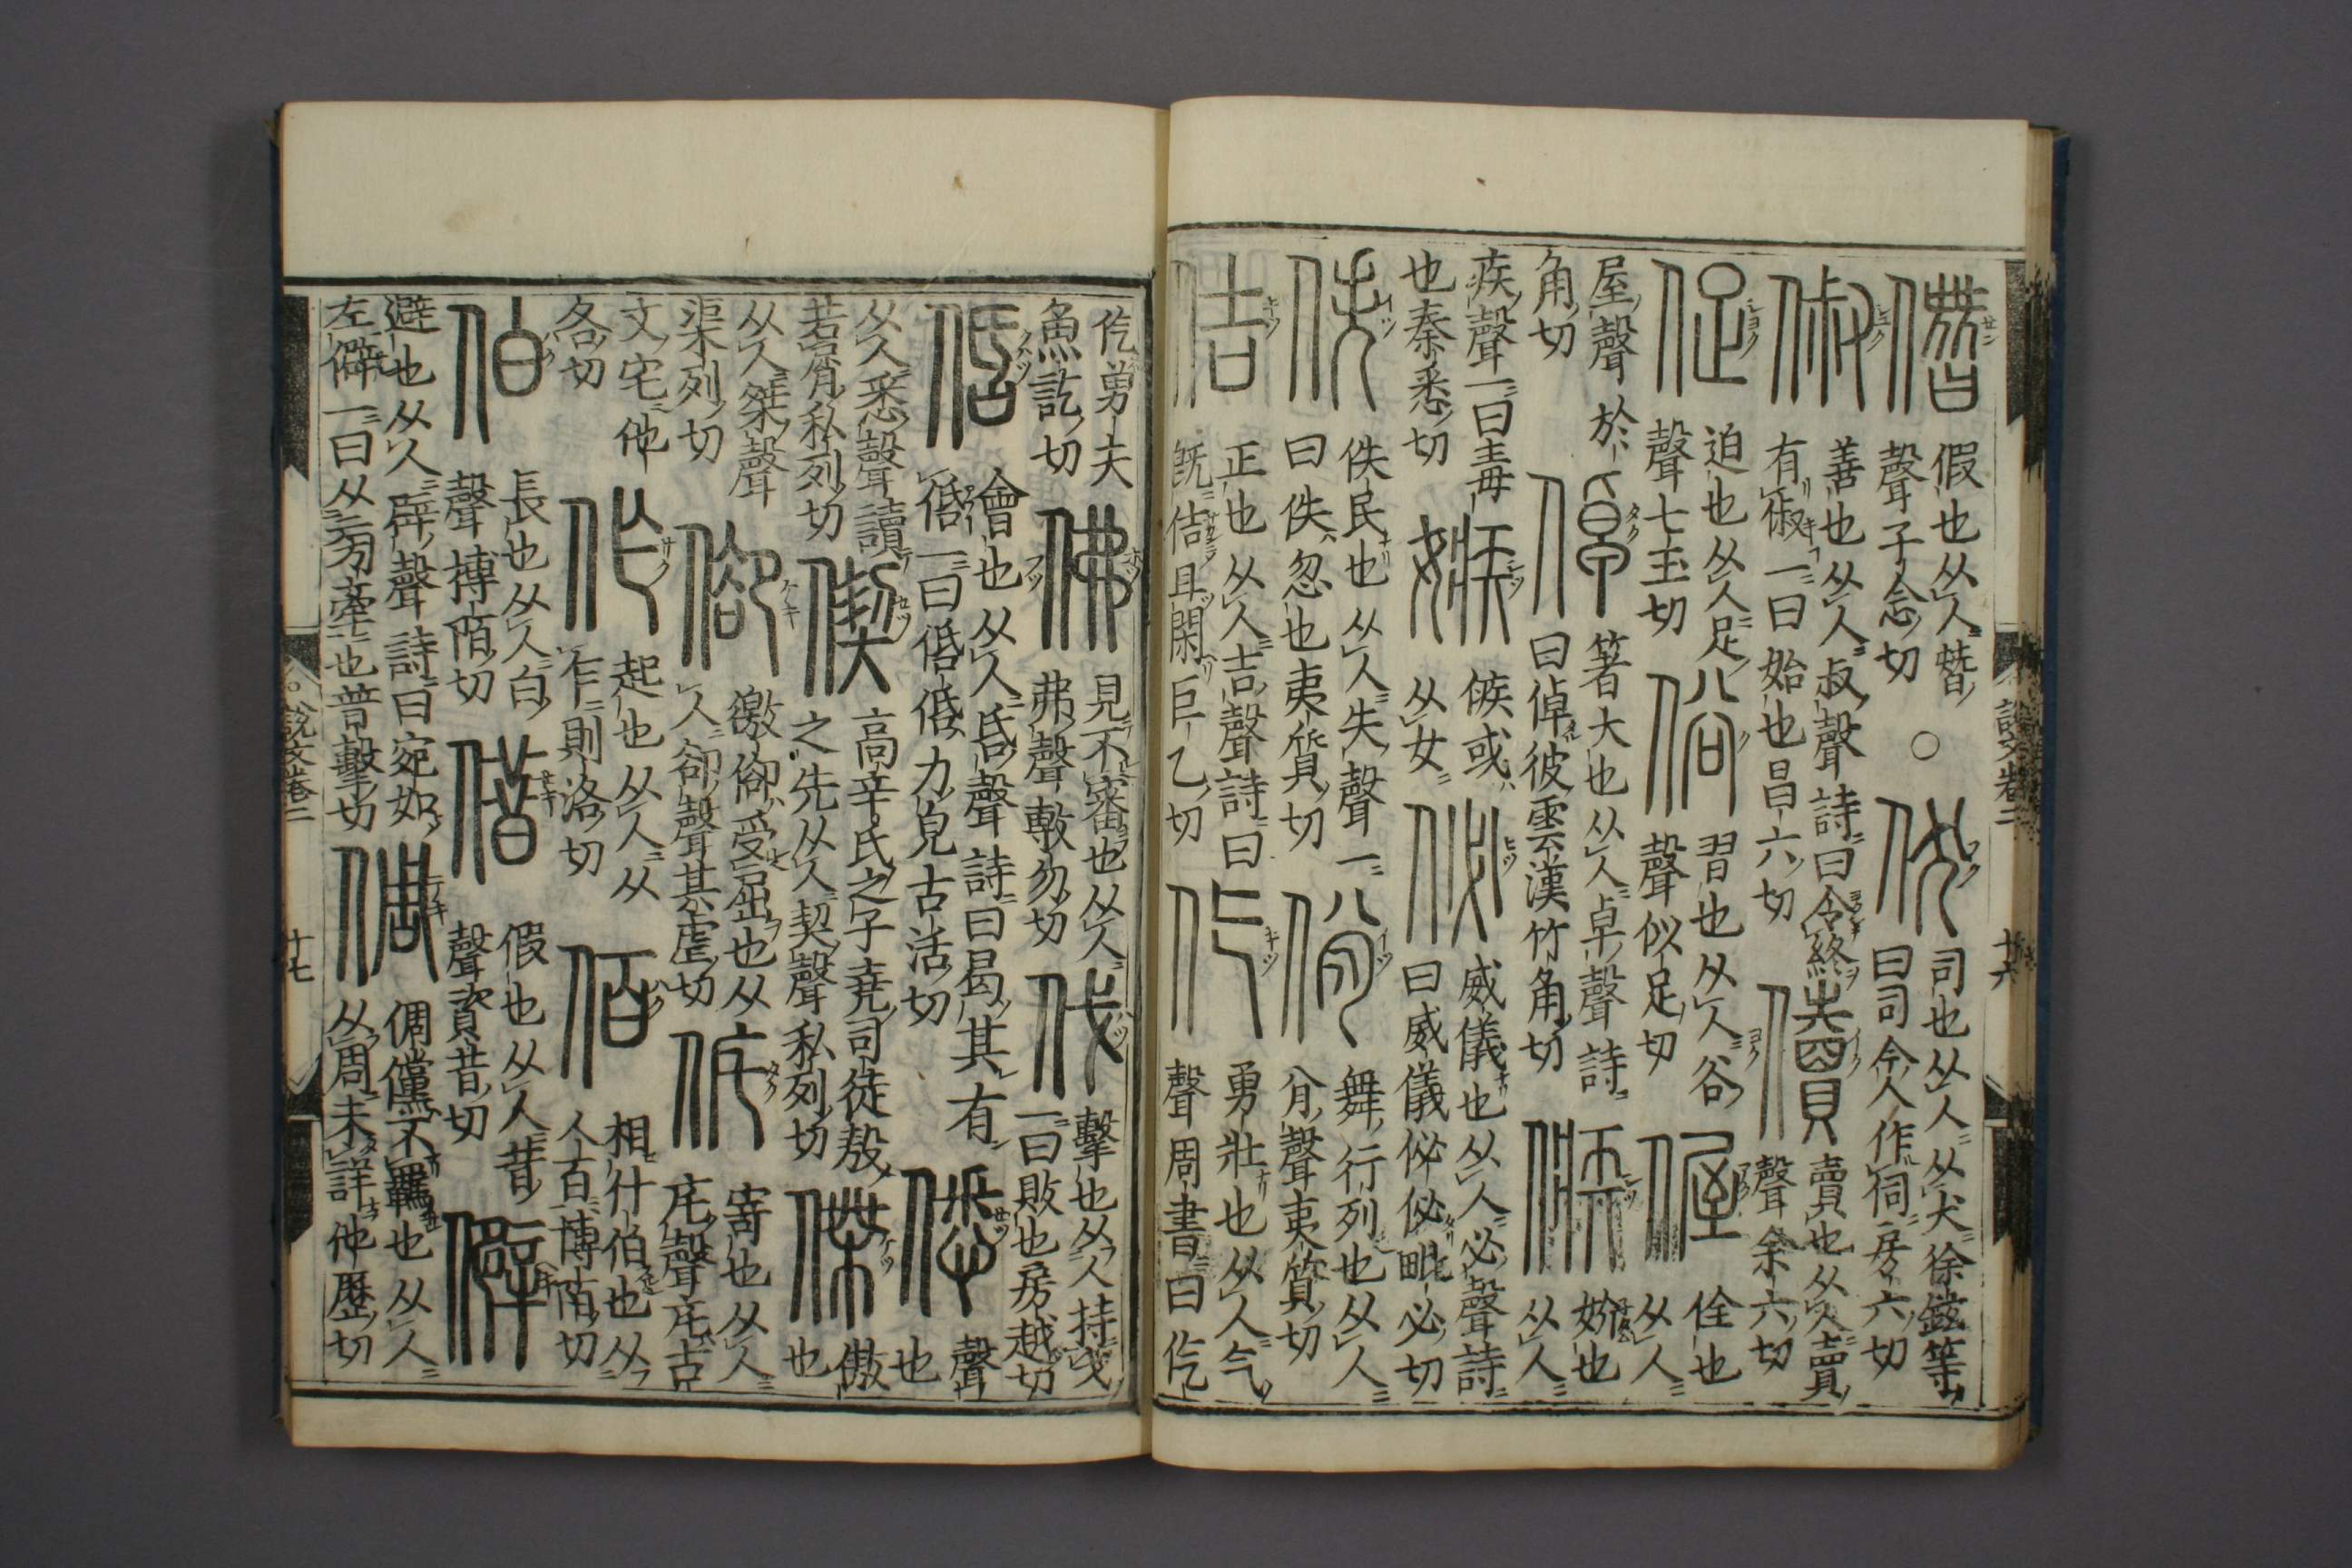 說文卷二 十六
僭 假也从人朁聲子念切 ○ 伏 司也从人从犬徐鉉等曰司今人作伺房六切
俶 善也从人叔聲詩曰令終有俶一曰始也昌六切 儥 賣也从人賣聲余六切
促 迫也从人足聲七玉切 俗 習也从人谷聲似足切 偓 佺也从人
屋聲於角切 倬 箸大也从人卓聲詩曰倬彼雲漢竹角切 㑵 妎也从人
疾聲一曰毒也秦悉切 嫉 㑵或从女 佖 威儀也从人必聲詩曰威儀佖佖毗必切
佚 佚民也从人失聲一曰佚忽也夷質切 佾 舞行列也从人㑞聲夷質切
佶 正也从人吉聲詩曰既佶且閑巨乙切 仡 勇壯也从人气聲周書曰仡
仡勇夫魚訖切 佛 見不審也从人弗聲敷勿切 伐 擊也从人持戈一曰敗也房越切
佸 會也从人𠯑聲詩曰曷其有佸一曰佸佸力皃古活切 僁 聲也
从人悉聲讀若屑私列切 偰 高辛氏之子堯司徒殷之先从人契聲私列切 傑 傲也
从人桀聲渠列切 徼受屈也从人卻聲其虐切 侂 寄也从人㡯聲㡯古
文宅他各切 作 起也从人从乍則洛切 佰 相什伯也从人百博陌切
伯 長也从人白聲博陌切 借 假也从人昔聲資昔切 僻
避也从人辟聲詩曰宛如左僻一曰从旁牽也普擊切 倜 倜儻不羈也从人从周未詳他歷切
說文卷二 十七